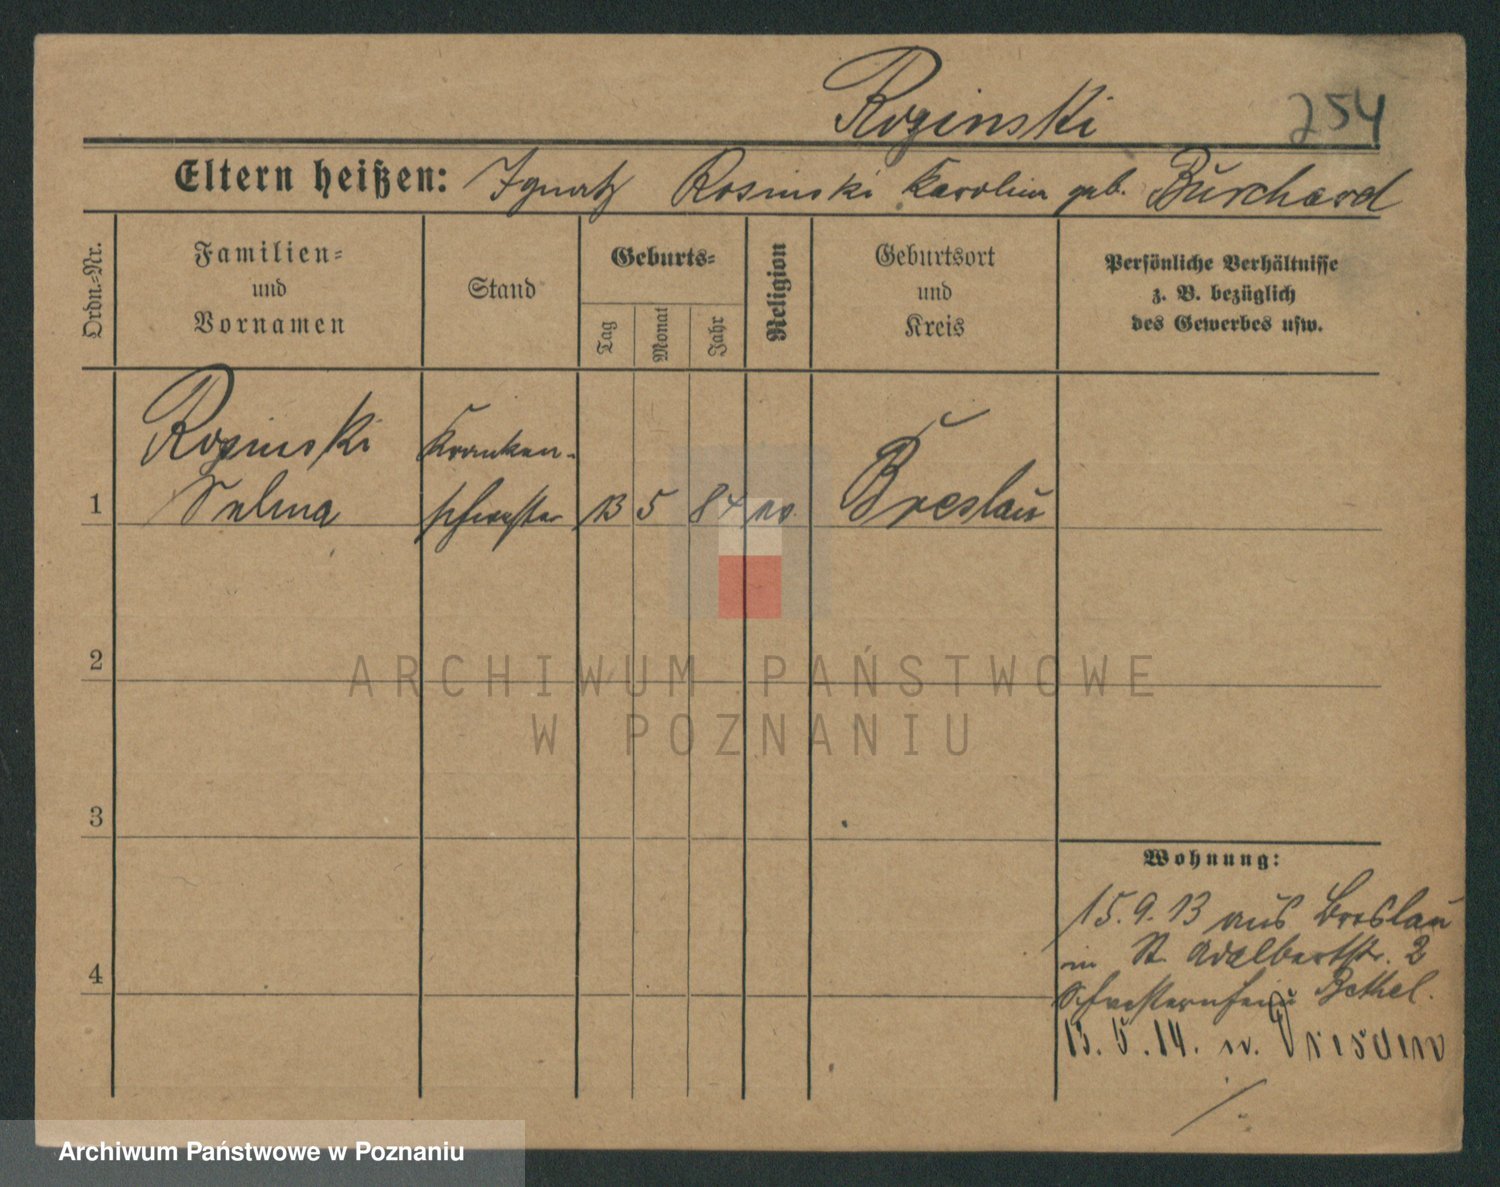 Roginski
254
Eltern heißen: Ignatz Rosinski Karolina geb. Burchard
Ordn.-Nr.
Familien-
und
Vornamen
Stand
Geburts-
Tag
Monat
Jahr
Religion
Geburtsort
und
Kreis
Persönliche Verhältnisse
z. B. bezüglich
des Gewerbes usw.
Roginski Kranken-
1 Selma schwester 13 5 84 ev. Breslau
2
3
4
ARCHIWUM PAŃSTWOWE
W POZNANIU
Wohnung:
15.9.13 aus Breslau
in St. Adalbertstr. 2
Schwesternheim Bethel.
13.5.14. n. Dresden
Archiwum Państwowe w Poznaniu